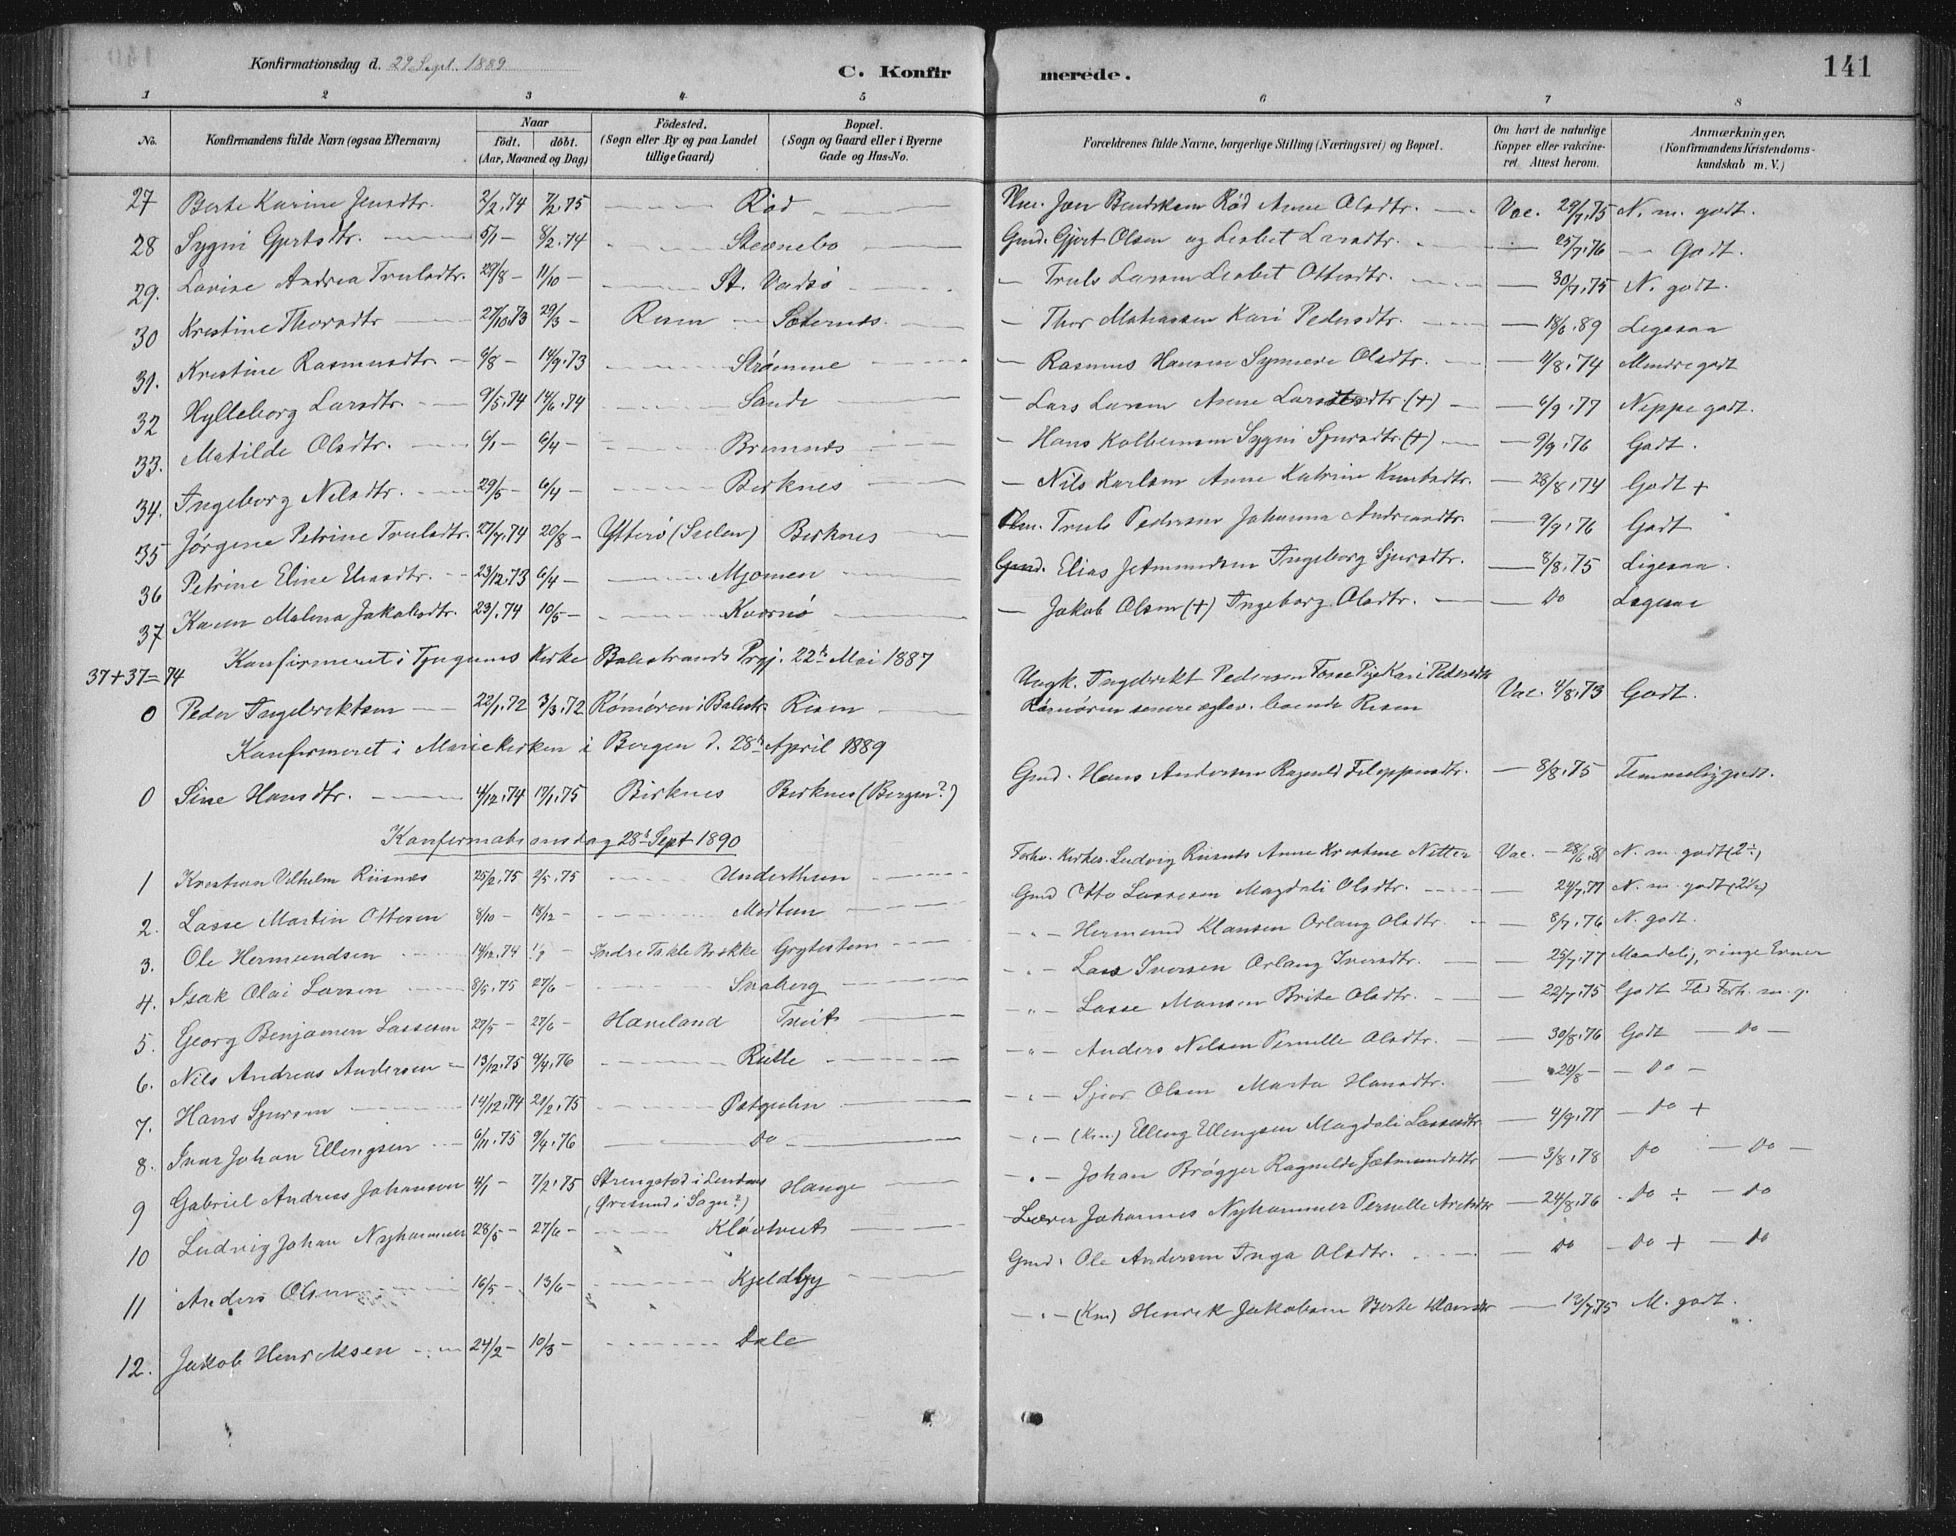 Konfirmationsdag d. 29 Sept. 1889
C. Konfirmerede.
141
1 2 3 4 5 6 7 8
No. Konfirmandens fulde Navn (ogsaa Efternavn) Naar født. døbt. (Aar, Maaned og Dag) Fødested. (Sogn eller By og paa Landet tillige Gaard) Bopæl. (Sogn og Gaard eller i Byerne Gade og Hus-No. Forældrenes fulde Navne, borgerlige Stilling (Næringsvei) og Bopæl. Om havt de naturlige Kopper eller vakcineret. Attest herom. Anmærkninger. (Konfirmandens Kristendomskundskab m. V.)
27 Berte Karine Jensdtr. 2/2.74 7/2.75 Rød Jon Bendiksen Rød Anne Olsdtr. Vac. 29/7.75 N. m. godt.
28 Sygni Gjertsdtr. 5/1 — 8/2.74 Stevnebø Gmd. Gjert Olsen og Lisbet Larsdtr. 25/7.76 Godt.
29. Lovise Andrea Trulsdtr. 29/8 — 11/10 — St. Vadsø — Truls Larsen Lisbet Ottesdtr. 30/7.75 N. godt.
30 Kristine Thorsdtr 27/10.73 29/3 — Risen Sæternes — Thor Mathiassen Kari Pedersdtr. — 18/6.89 Ligesaa
31. Kristine Rasmusdtr. 6/8 — 14/9.73 Strømme — Rasmus Hansen Synneve Olsdtr. — 11/8.74 Mindre godt
32 Hylleborg Larsdtr. 9/5.74 14/6.74 Sande — Lars Larsen Anne Larsdtr. (+) — 6/9.77 Neppe godt.
33. Matilde Olsdtr. 6/1 — 6/4 — Bremnes — Hans Kolbensen Sygni Sjursdtr. (+) — 9/9.76 Godt.
34. Ingeborg Nilsdtr. 29/5 — 6/4 — Birknes — Nils Karlsen Anne Katrine Knutsdtr. — 28/8.74 Godt +
35 Jørgine Petrine Trulsdtr. 27/7.74 20/8 — Ytterø (Sulen) Birknes Truls Pedersen Johanna Andreasdtr. — 9/9.76 Godt
36 Petrine Eline Eliasdtr. 23/12.73 6/4 — Mjømen Gmd. Elias Jetmundsen Ingeborg Sjursdtr. — 8/8.75 Ligesaa.
37 Karen Malena Jakobsdtr. 23/1.74 10/5 — Kvernø — Jakob Olsen (+) Ingeborg Olsdtr. — Do Ligesaa
37+37=74 Konfirmeret i Tjugums Kirke Balestrands Prgj. 22de Mai 1887
0 Peder Ingebrektsen 22/1.72 3/3.72 Rømøren i Balestr. Risen Ungk. Ingebrekt Pedersen Fosse Pige Kari Pedersdtr Rømøren senere ægtev. boende Risen Vac. 4/8.73 Godt.
Konfirmeret i Mariekirken i Bergen d. 28de April 1889
0 Sine Hansdtr. 4/12.74 19/1.75 Birknes Birknes (Bergen?) Gmd. Hans Andersen Ragnild Filippusdtr. — 8/8.75 Temmelig godt.
Konfirmationsdag 28de Sept 1890
1 Kristian Vilhelm Risnes 25/2.75 2/5.75 Underthun Forhv. Kirkes. Ludvig Risnes Anne Kristine Nitter Vac. — 28/6.81 N. m. godt (2÷)
2. Lasse Martin Ottesen 8/10 — 18/12 — Midtun Gmd Otto Lassesen Magdeli Olsdtr. 24/7.77 N. m. godt (2½)
3. Ole Hermundsen 14/12.74 Indre Takle Brekke Grytesten — " — Hermund Klausen Orlaug Olsdtr. — 8/7.76 N. godt.
4. Isak Olai Larsen 8/5.75 27/6 — Svaberg — " — Lars Iversen Orlaug Iversdtr. — 25/7.77 Maadelig, ringe Evner
5. Georg Benjamin Lassesen 27/5 — 27/6 — Haveland Tveit — " — Lasse Monsen Brite Olsdtr. — 22/7.75 Godt Flid Forh. m. g.
6. Nils Andreas Andersen 13/12.75 9/4.76 Rutle — " — Anders Nilsen Pernille Olsdtr. — 30/8.76 Godt — Do —
7. Hans Sjursen 14/12.74 21/2.75 Østgulen — " — Sjur Olsen Marta Hansdtr. 29/8 — — Do —
8. Ivar Johan Ellingsen 6/11.75 9/4.76 Do — " — (Km) Elling Ellingsen Magdeli Lassesdtr — 4/9.77 — Do +
9 Gabriel Andreas Johanson 4/1 — 7/2.75 (Øresund i Sogn?) Hauge — " — Johan Brøgger Ragnilde Jetmundsdtr — 3/8.78 Do — Do —
10 Ludvig Johan Nyhammer 28/5 — 27/6 — Kløvtveit Lærer Johannes Nyhammer Pernille — 24/8.76 Do ÷ — Do
11 Anders Olsen 16/5 — 13/6 — Kjeldby Gmd. Ole Andersen Inga Olsdtr. — Do — Do + — Do
12. Jakob Henriksen 24/2 — 10/3 — Dale — " — (Km) Henrik Jakobsen Berte Hansdtr — 12/7.75 M. godt.